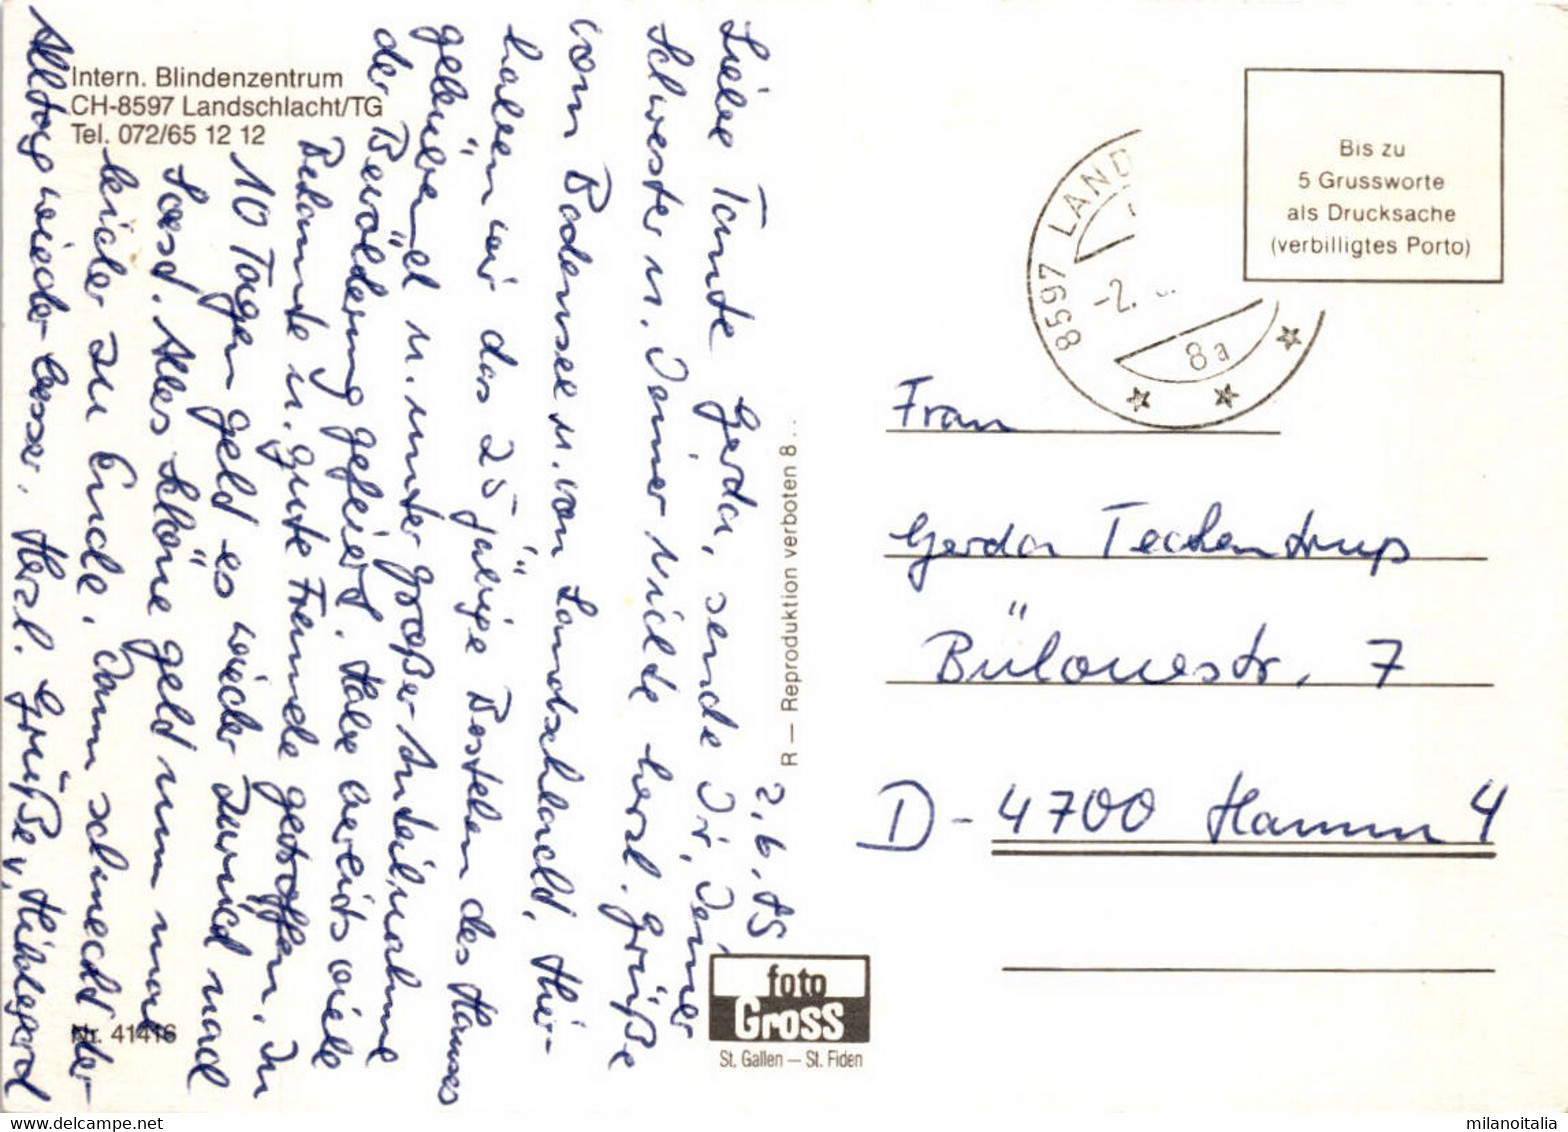 Intern. Blindenzentrum
CH-8597 Landschlacht/TG
Tel. 072/65 12 12
2.6.85
Liebe Tante Gerda, sende Dir, Deiner
Schwester u. Deiner Nichte herzl. Grüße
vom Bodensee u. von Landschlacht. Hier
haben wir das 25 jährige Bestehen des Hauses
gebührend u. unter großer Anteilnahme
der Bevölkerung gefeiert. Habe bereits viele
Bekannte u. gute Freunde getroffen. In
10 Tagen geht es wieder zurück nach
Soest. Alles Schöne geht nun mal
leider zu Ende. Dann schmeckt der
Alltag wieder besser. Herzl. Grüße v. Hildegard
Nr. 41416
R — Reproduktion verboten 8...
foto
Gross
St. Gallen — St. Fiden
8597 LAND
-2.
8a
Bis zu
5 Grussworte
als Drucksache
(verbilligtes Porto)
Frau
Gerda Teckentrup
Bülowestr. 7
D-4700 Hamm 4
milanoitalia